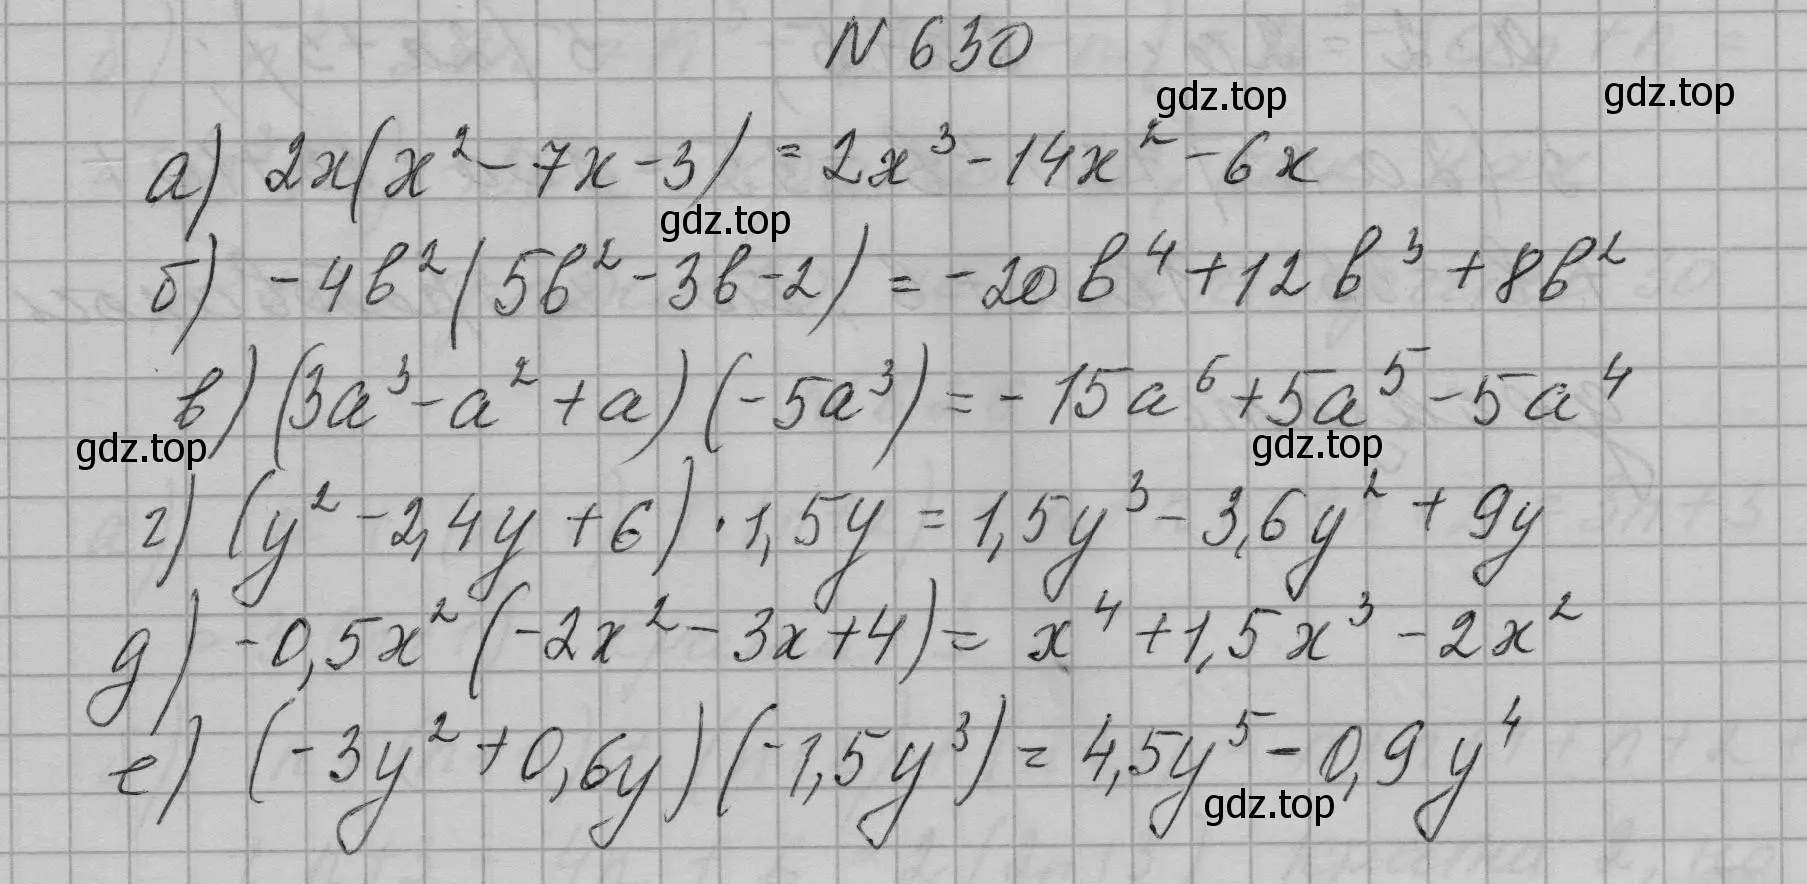 N 630
gdz.top
gdz.top
а) 2x(x² - 7x - 3) = 2x³ - 14x² - 6x
gdz.top
б) -4b²(5b² - 3b - 2) = -20b⁴ + 12b³ + 8b²
в) (3a³ - a² + a)(-5a³) = -15a⁶ + 5a⁵ - 5a⁴
gdz.top
gdz.top
г) (y² - 2,4y + 6) · 1,5y = 1,5y³ - 3,6y² + 9y
д) -0,5x²(-2x² - 3x + 4) = x⁴ + 1,5x³ - 2x²
е) (-3y² + 0,6y)(-1,5y³) = 4,5y⁵ - 0,9y⁴
gdz.top